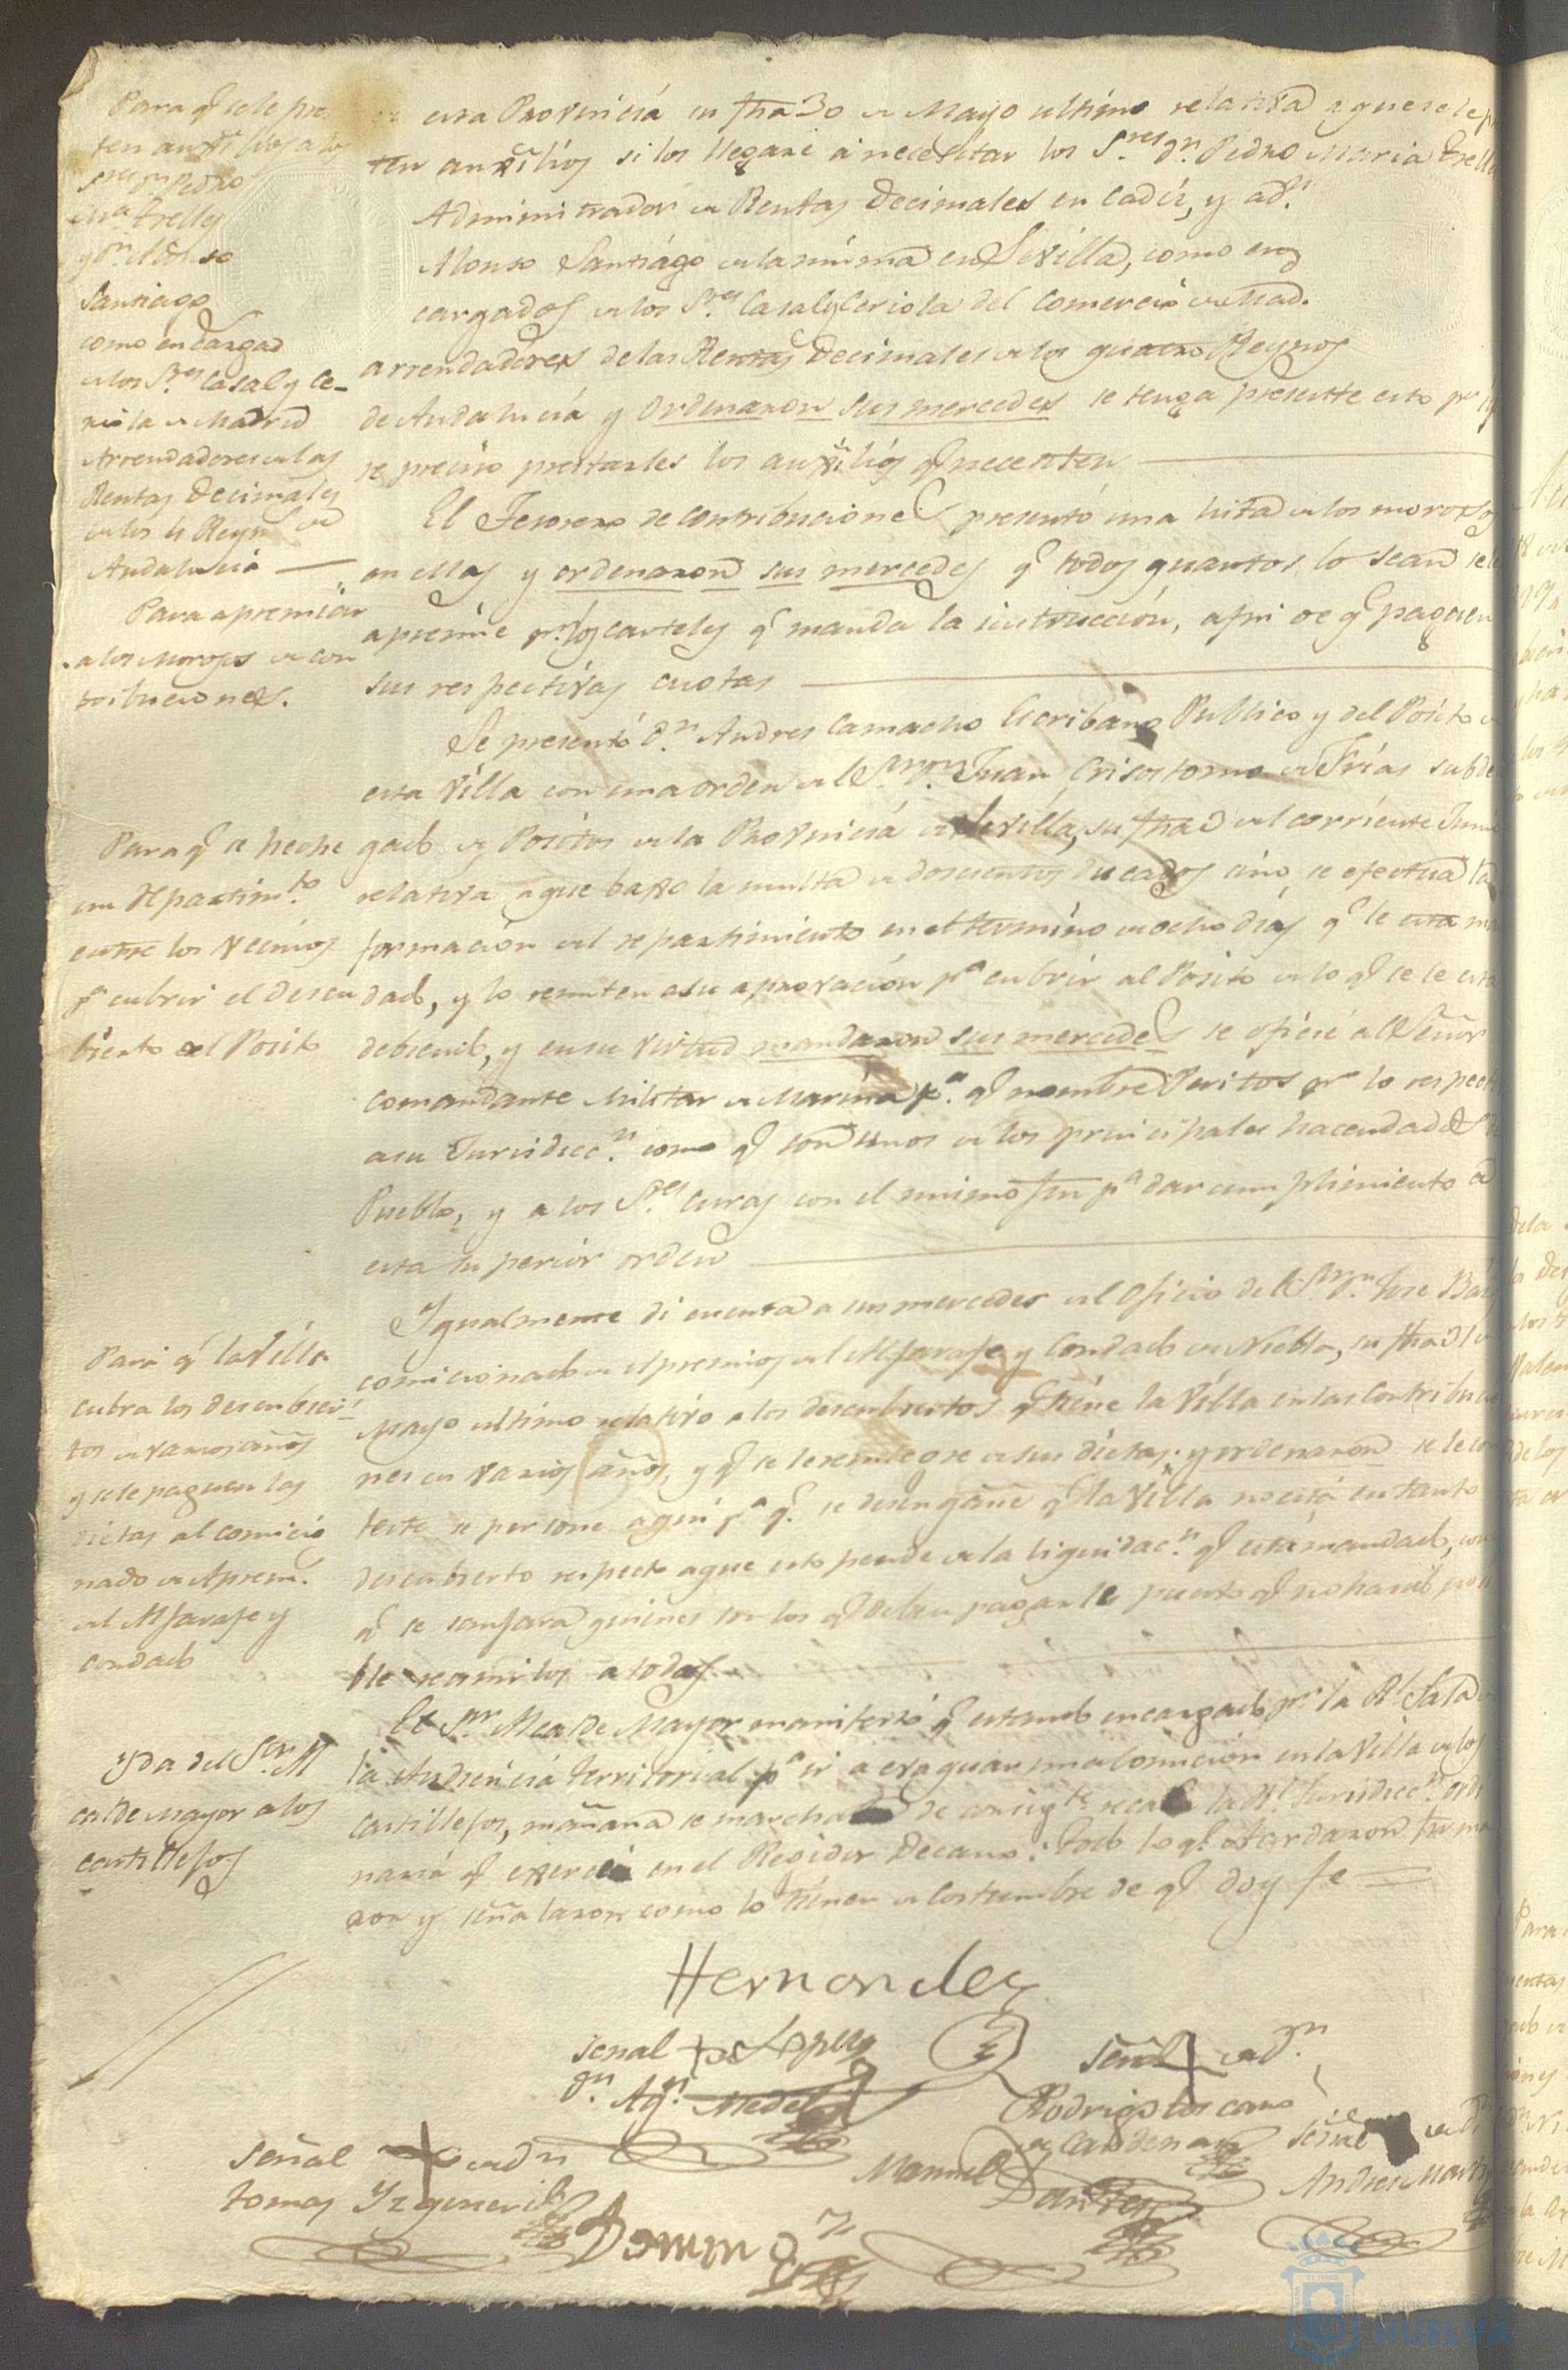 Para q.e se le pres
ten auxilios a los
S.res D.n Pedro
M.a Trelles
y D.n Alonso
Santiago
como encargad
de los S.res Casal y Ce-
riola de Madrid
Arrendadores de las
Rentas Decimales
de los 4 Reyn.s de
Andalucia
Para apremiar
a los Morosos de con
tribuciones.
Para q.e se heche
un Repartim.to
entre los vecinos
p.a cubrir el descu
bierto del Posito
Para q.e la Villa
cubra los descubier
tos de varios años
y se le paguen las
dietas al comicio
nado de Aprem.s
del Alfarafe y
condado
Yda del S.or Al
calde mayor a los
castillejos
esta Provincia su fha 30 de Mayo ultimo relativa a que se le pres
ten auxilios si los llegare a necesitar los S.res D.n Pedro Maria Trelles
Administrador de Rentas Decimales en Cadiz, y a D.n
Alonso Santiago de la misma en Sevilla, como en
cargados de los S.res Casal y Ceriola del comercio de Mad.
arrendadores de las Rentas Decimales de los quatro Reynos
de Andalucia y ordenaron sus mercedes se tenga presente esto p.r si
se preciso prestarles los auxilios q.e necesiten
El Tesorero de contribuciones presentó una lista de los morosos
en ellas y ordenaron sus mercedes q.e todos quantos lo sean se les
apremie p.r los carteles q.e manda la instruccion, a fin de q.e paguen
sus respectivas cuotas
Se presentó D.n Andres Camacho Escribano Publico y del Posito de
esta Villa con una orden del S.or D.n Juan Crisostomo de Frias subde
gado de Positos de la Provincia de Sevilla, su fha 3 del corriente Junio
relativa a que baxo la multa de doscientos ducados sino se efectua la
formacion del repartimiento en el termino de ocho dias q.e le esta man
dado, y lo remiten a su aprovacion p.a cubrir al Posito de lo q.e se le esta
debiendo, y en su virtud mandaron sus mercedes se oficie al Señor
comandante Militar de Marina p.a q.e nombre Peritos p.r lo respect
a su Jurisdicc.n como q.e son unos de los principales hacendados
Pueblo, y a los S.res Curas con el mismo fin p.a dar cumplimiento a
esta superior orden
Igualmente di cuenta a sus mercedes del oficio del S.or D.n Jose
comicionado de Apremios del Alfarafe y Condado de Niebla, su fha
Mayo ultimo relativo a los descubiertos q.e tiene la Villa en las Contribucio
nes en varios años, y q.e se le reintegre de sus dietas; y ordenaron se le con
teste se persone aqui p.a q.e se desengañe q.e la Villa no está en tanto
descubierto respecto a que esto pende de la liquidac.n q.e está mandado, con
q.e se quienes son los q.e deben pagarle puesto q.e no ha sido posi
ble reunirlos a todos
El S.or Alcalde Mayor manifestó q.e estando encargado p.r la R.l Sala de
la Audiencia territorial p.a ir a evaquar una comicion en la Villa de los
Castillejos, mañana se marcha de consig.te la R.l Jurisdicc.n ordi
naria q.e exercia en el Regidor Decano: Todo lo q.e acordaron firma
ron y señalaron como lo tienen de costumbre de q.e doy fe
Hernandez
señal + de Lopez
D.n Ag.n Medel
Señal + de D.n
Rodrigo
de Cardenas
señal de D.n
Andres
señal + de D.n
tomas
Manuel
Doming
Ayuntamiento
HUELVA